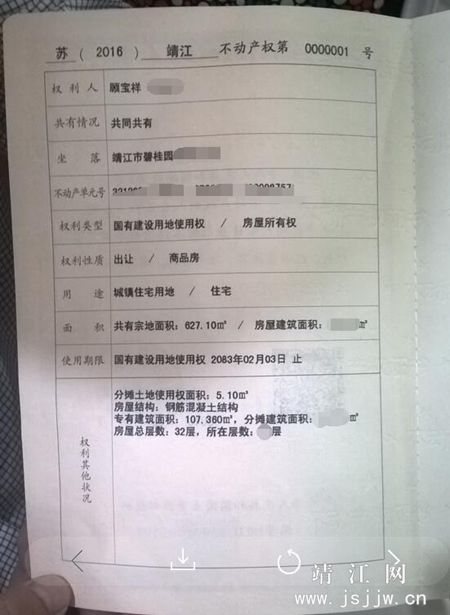 苏 ( 2016 ) 靖江 不动产权第 0000001 号
权利人 顾宝祥
共有情况 共同共有
坐落 靖江市碧桂园
不动产单元号
权利类型 国有建设用地使用权 / 房屋所有权
权利性质 出让 / 商品房
用途 城镇住宅用地 / 住宅
面积 共有宗地面积：627.10㎡ / 房屋建筑面积： ㎡
使用期限 国有建设用地使用权 2083年02月03日 止
权利其他状况
分摊土地使用权面积：5.10㎡
房屋结构：钢筋混凝土结构
专有建筑面积：107.360㎡，分摊建筑面积： ㎡
房屋总层数：32层，所在层数： 层
靖江网
www.jsjjw.cn